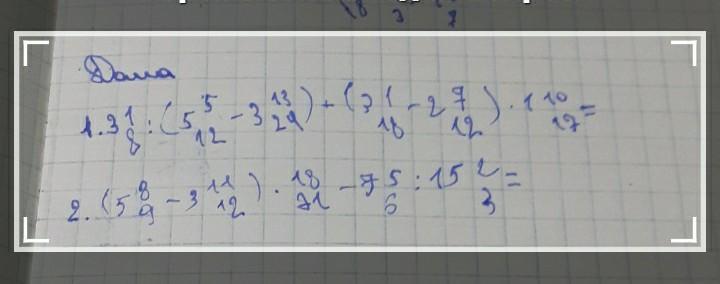 Дома
1. 3 1/8 : (5 5/12 - 3 13/24) + (3 1/18 - 2 7/12) · 1 10/17 =
2. (5 8/9 - 3 11/12) · 18/71 - 7 5/6 : 15 2/3 =